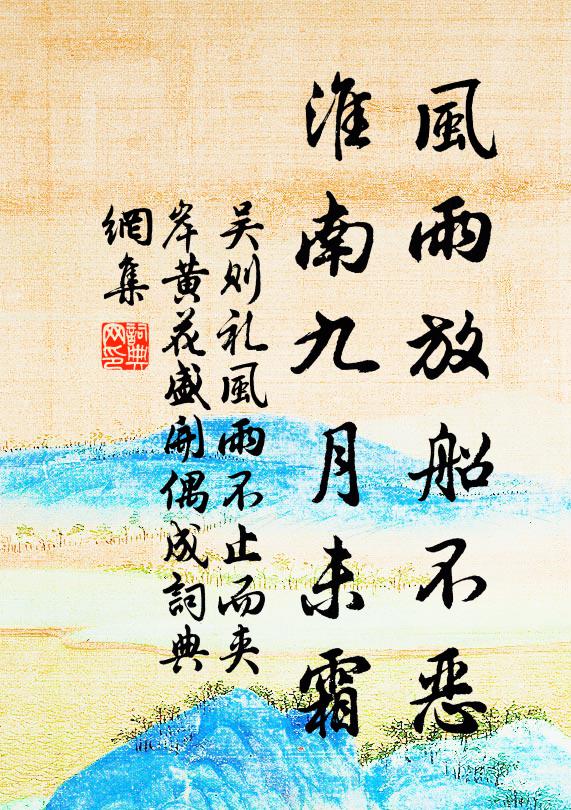 風雨放船不惡
淮南九月未霜
吴则礼風雨不止而夾
岸黄花盛開偶成詞典
網集
詞典
网印